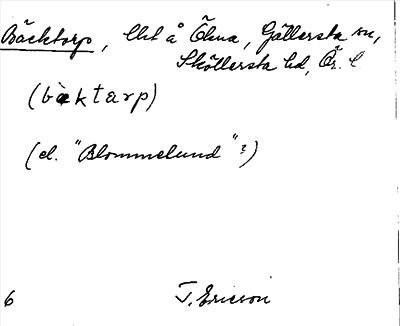 Bäcktorp, lht å Ölna, Gällersta sn,
Sköllersta hd, Ör. l
(bɛ̀ktɑrp)
(el. "Blommelund"?)
6 T. Ericson